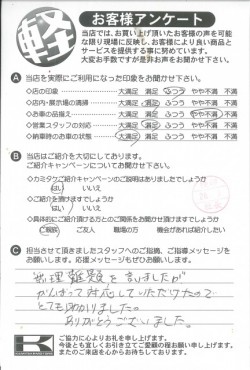 軽
お客様アンケート
当店では、お買い上げ頂いたお客様の声を可能
な限り現場に反映し、お客様により良い商品と
サービスを提供する事に努めています。
大変お手数ですが是非お声をお聞かせ下さい。
A 当店を実際にご利用になった印象をお聞かせ下さい。
◇店の印象 大満足 満足 ふつう やや不満 不満
◇店内・展示場の清掃 大満足 満足 ふつう やや不満 不満
◇お車の品揃え 大満足 満足 ふつう やや不満 不満
◇営業スタッフの対応 大満足 満足 ふつう やや不満 不満
◇納車時のお車の状態 大満足 満足 ふつう やや不満 不満
B 当店はご紹介を大切にしております。
ご紹介キャンペーンについてお聞かせ下さい。
◇カミタケご紹介キャンペーンのご説明はありましたでしょうか
はい いいえ
◇ご紹介を頂けますでしょうか
はい いいえ
◇具体的にご紹介頂ける方とのご関係をお聞かせ頂けますでしょうか
ご親族 ご友人 職場の方 機会があれば紹介したい
C 担当させて頂きましたスタッフへのご指摘、ご指導メッセージを
お願いします。応援メッセージもぜひお願いします。
無理難題を言いましたが
がんばって対応していただけたので
とても助かりました。
ありがとうございました。
K
ご協力に心よりお礼を申し上げます。
今後とも宜しくお引き立てご愛顧の程お願い申し上げます。
またのご来店を心からお待ちしております。